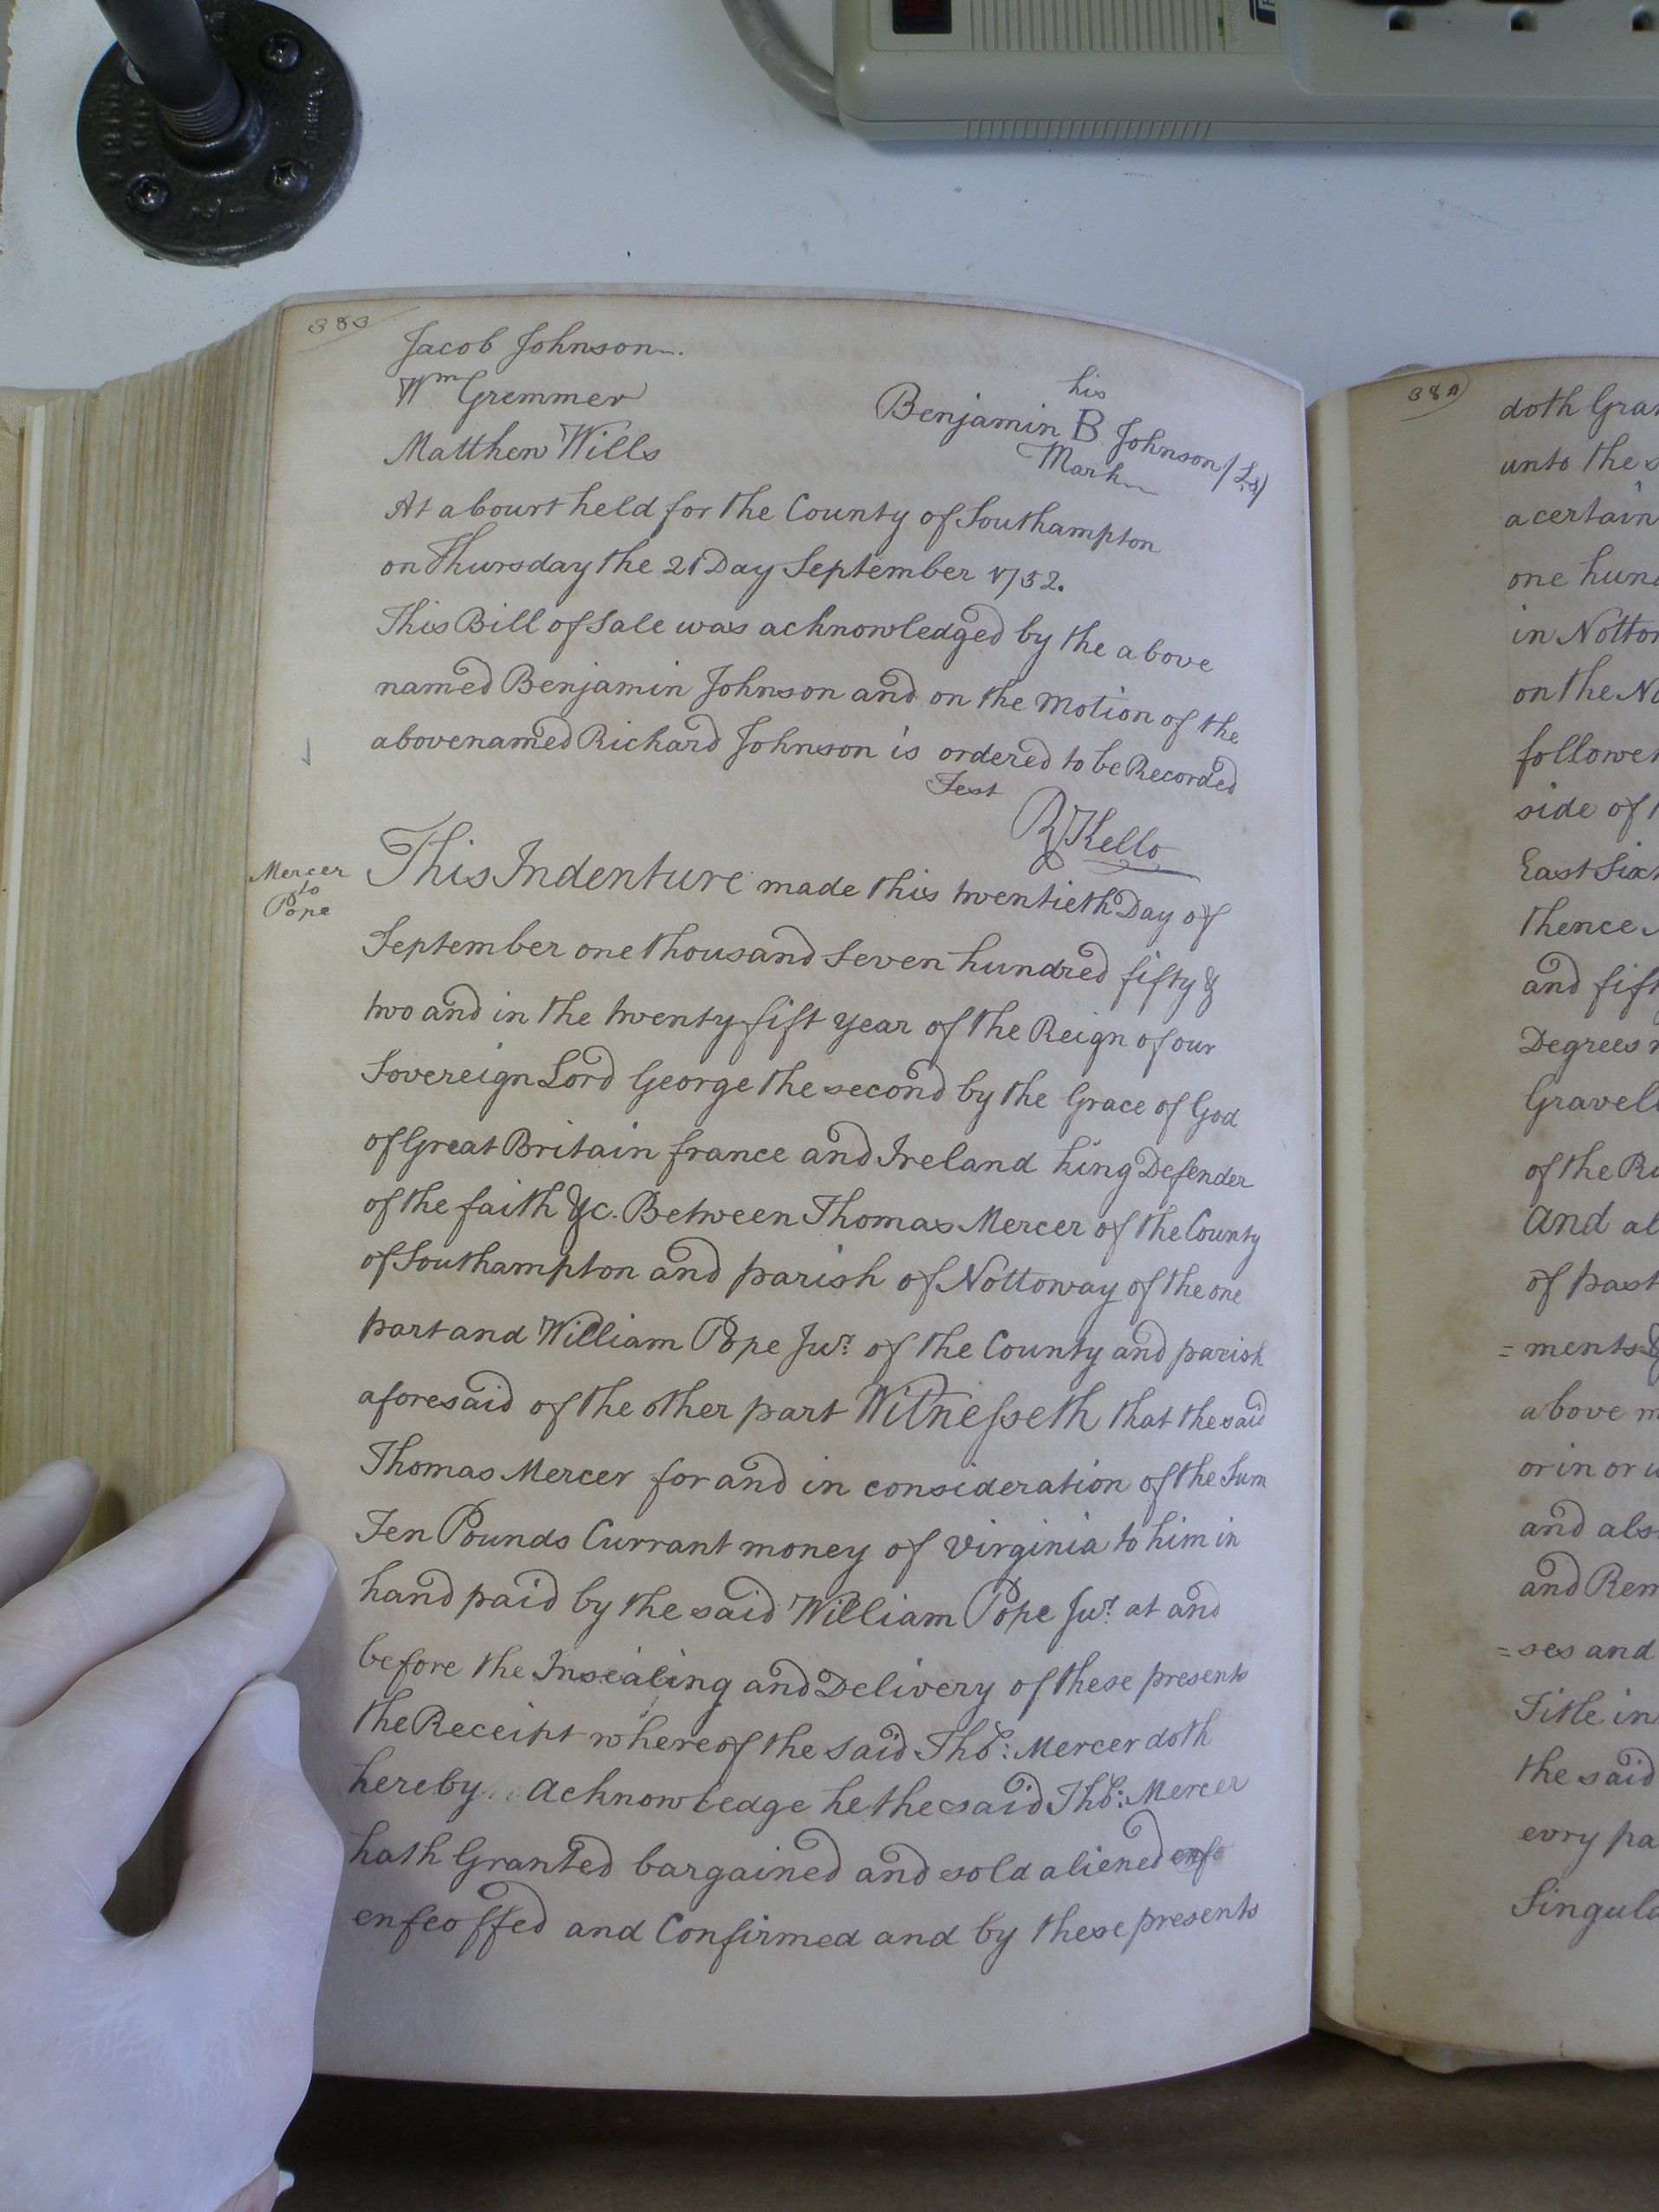 383
Jacob Johnson
Wm Gremmer
Matthew Wills
his
Benjamin B Johnson (Ls)
Mark
At a bourt held for the County of Southampton
on Thursday the 21 Day September 1752.
This Bill of Sale was acknowledged by the above
named Benjamin Johnson and on the Motion of the
abovenamed Richard Johnson is ordered to be Recorded
Test
R Kello
Mercer
to
Pope
This Indenture made this twentieth Day of
September one thousand Seven hundred fifty &
two and in the twenty fift year of the Reign of our
Sovereign Lord George the second by the Grace of God
of Great Britain france and Ireland king Defender
of the faith &c. Between Thomas Mercer of the County
of Southampton and parish of Nottoway of the one
part and William Pope Jur. of the County and parish
aforesaid of the other part Witnesseth that the said
Thomas Mercer for and in consideration of the Sum
Ten Pounds Currant money of Virginia to him in
hand paid by the said William Pope Jur. at and
before the Insealing and Delivery of these presents
the Receipt whereof the Said Tho: Mercer doth
hereby acknowledge he the said Tho: Mercer
hath Granted bargained and sold aliened enfe
enfeoffed and Confirmed and by these presents
384
doth Gran
unto the s
a certain
one hund
in Notto
on the No
follower
side of t
East Sixt
thence
and fift
Degrees n
Gravell
of the Ru
And al
of past
= ments &
above m
or in or u
and als
and Rem
= ses and
Title in
the said
evry pa
Singula